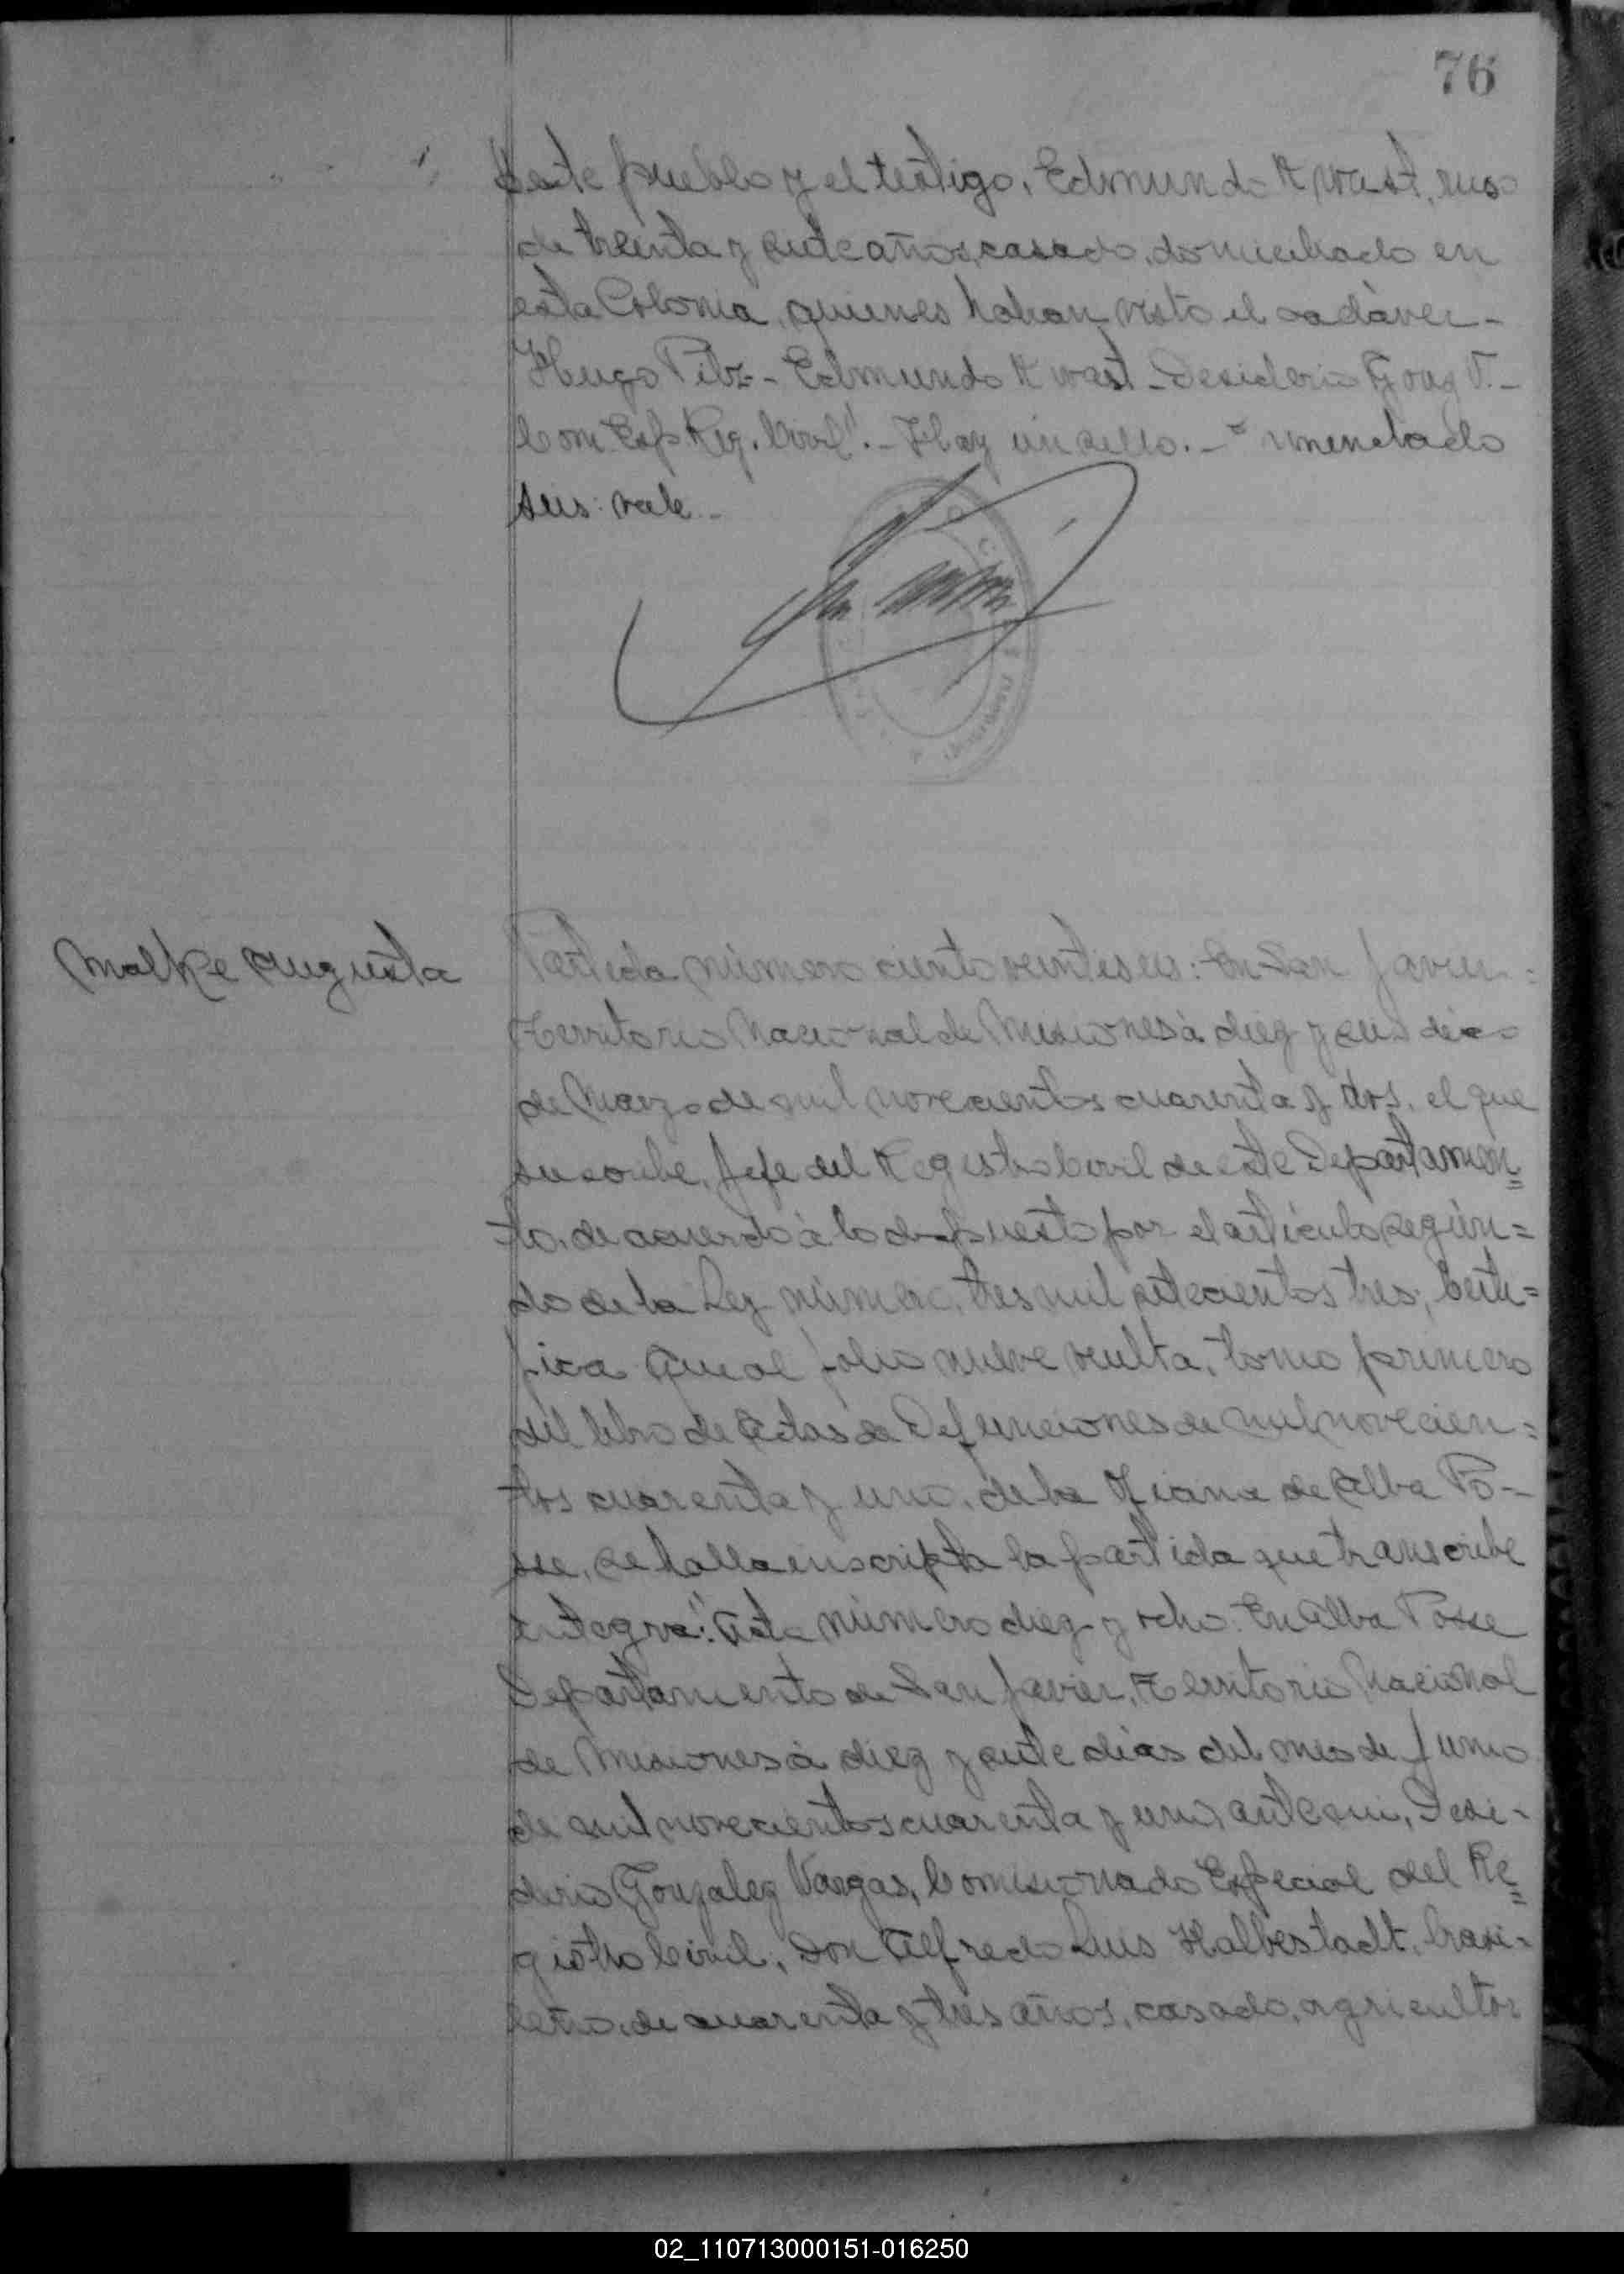 76
deste pueblo y el testigo, Edmundo Kwast, ruso
de treinta y siete años, casado, domiciliado en
esta Colonia, quienes habian visto el cadàver-
Hugo - Edmundo Kwast - Desiderio Gonz V.-
Com Esp Reg. Civil".- Hay un sello.- enmendado
seis: vale -
Malke Augusta
Partida número ciento veintiseis: En San Javier =
Territorio Nacional de Misiones à diez y seis dias
de Marzo de mil novecientos cuarenta y dos, el que
suscribe, Jefe del Registro Civil de este Departamen=
to, de acuerdo à lo dispuesto por el artículo segun=
do de la Ley número, tres mil setecientos tres, Certi=
fica Que al folio nueve vuelta, tomo primero
del libro de Actas de Defunciones de mil novecien=
tos cuarenta y uno, de la Oficina de Alba Po-
sse, se halla inscripta la partida que transcribe
integra:"Acta número diez y ocho. En Alba Posse
Departamento de San Javier, Territorio Nacional
de Misiones à diez y siete dias del mes de Junio
de mil novecientos cuarenta y uno, ante mi, Desi-
derio Gonzalez Vargas, Comisionado Especial del Re=
gistro Civil, Don Alfredo Luis Halbestadt, brasi-
leño, de cuarenta y tres años, casado, agricultor
02_110713000151-016250